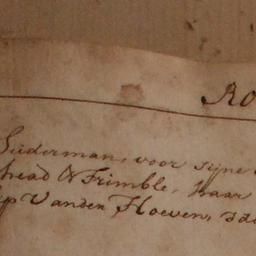 Ro
Suderman, voor zijne
head & Trimble, haar
Vanden Hoeven,